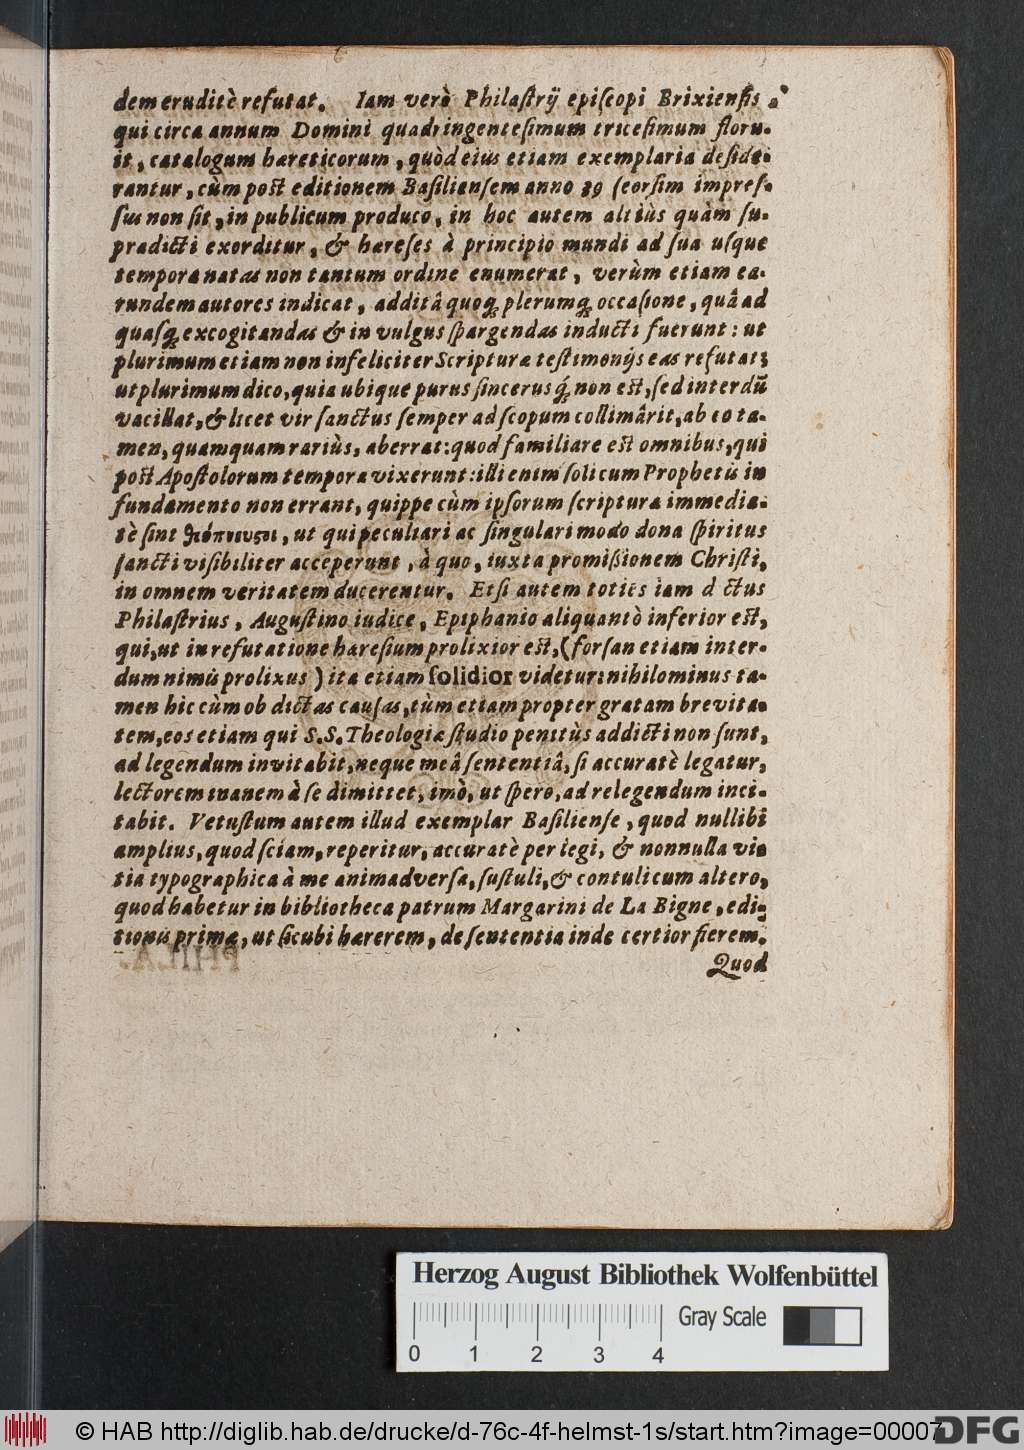 dem eruditè refutat. Iam verò Philaſtrij epiſcopi Brixienſis,
qui circa annum Domini quadringenteſimum triceſimum floru-
it, catalogum hæreticorum, quòd eius etiam exemplaria deſide-
rantur, cùm poſt editionem Baſilienſem anno 39 ſeorſim impreſ-
ſus non ſit, in publicum produco, in hoc autem altiùs quàm ſu-
pradicti exorditur, & hæreſes à principio mundi ad ſua uſque
tempora natas non tantum ordine enumerat, verùm etiam ea-
rundem autores indicat, additâ quoqꝫ plerumqꝫ occaſione, quâ ad
quaſqꝫ excogitandas & in vulgus ſpargendas inducti fuerunt: ut
plurimum etiam non infeliciter Scripturæ teſtimonijs eas refutat;
ut plurimum dico, quia ubique purus ſincerusqꝫ́ non eſt, ſed interdū
vacillat, & licet vir ſanctus ſemper ad ſcopum collimârit, ab eo ta-
men, quamquam rariùs, aberrat: quod familiare eſt omnibus, qui
poſt Apoſtolorum tempora vixerunt: illi enim ſoli cum Prophetis in
fundamento non errant, quippe cùm ipſorum ſcriptura immedia-
tè ſint θεόπνευϛοι, ut qui peculiari ac ſingulari modo dona ſpiritus
ſancti viſibiliter acceperunt, à quo, iuxta promißionem Chriſti,
in omnem veritatem ducerentur. Etſi autem toties iam d ctus
Philaſtrius, Auguſtino iudice, Epiphanio aliquantò inferior eſt,
qui, ut in refutatione hæreſium prolixior eſt, (forſan etiam inter-
dum nimis prolixus) ita etiam ſolidior videtur: nihilominus ta-
men hic cùm ob dictas cauſas, tùm etiam propter gratam brevita-
tem, eos etiam qui S.S. Theologiæ ſtudio penitùs addicti non ſunt,
ad legendum invitabit, neque meâ ſententiâ, ſi accuratè legatur,
lectorem inanem à ſe dimittet, imò, ut ſpero, ad relegendum inci-
tabit. Vetuſtum autem illud exemplar Baſilienſe, quod nullibi
amplius, quod ſciam, reperitur, accuratè perlegi, & nonnulla vi-
tia typographica à me animadverſa, ſuſtuli, & contuli cum altero,
quod habetur in bibliotheca patrum Margarini de La Bigne, edi-
tionis primæ, ut ſicubi hærerem, de ſententia inde certior fierem.
Quod
Herzog August Bibliothek Wolfenbüttel
Gray Scale
0 1 2 3 4
© HAB http://diglib.hab.de/drucke/d-76c-4f-helmst-1s/start.htm?image=00007
DFG